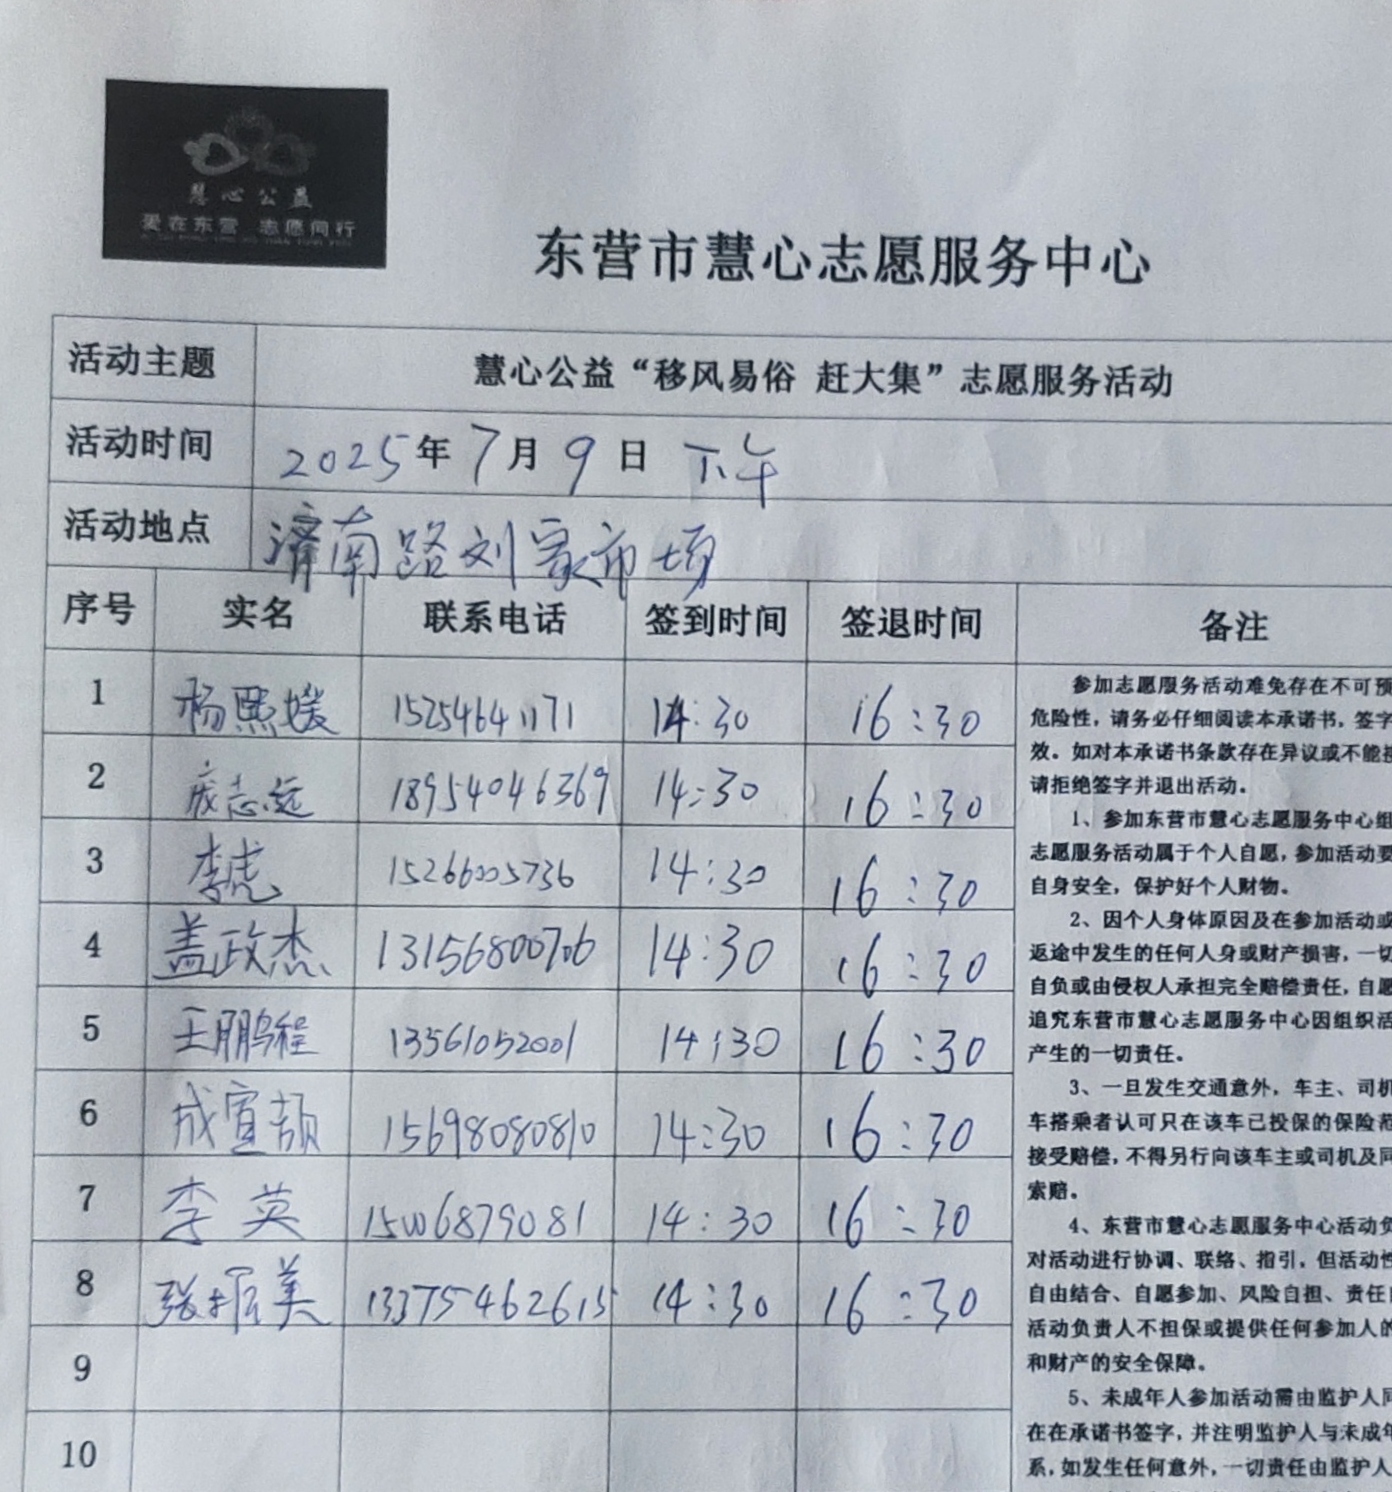 慧心公益
爱在东营 志愿同行
东营市慧心志愿服务中心
活动主题 慧心公益“移风易俗 赶大集”志愿服务活动
活动时间 2025年7月9日 下午
活动地点 济南路刘家市场
序号 实名 联系电话 签到时间 签退时间 备注
1 杨熙媛 15254641171 14:30 16:30
2 成志远 18954046369 14:30 16:30
3 李虎 15266005736 14:30 16:30
4 盖政杰 13156800706 14:30 16:30
5 王鹏程 13561052001 14:30 16:30
6 成宣颉 15698080810 14:30 16:30
7 李英 15006879081 14:30 16:30
8 张振美 13375462615 14:30 16:30
9
10
参加志愿服务活动难免存在不可预
危险性，请务必仔细阅读本承诺书，签字
效。如对本承诺书条款存在异议或不能接
请拒绝签字并退出活动。
1、参加东营市慧心志愿服务中心组
志愿服务活动属于个人自愿，参加活动要
自身安全，保护好个人财物。
2、因个人身体原因及在参加活动或
返途中发生的任何人身或财产损害，一切
自负或由侵权人承担完全赔偿责任，自愿
追究东营市慧心志愿服务中心因组织活
产生的一切责任。
3、一旦发生交通意外，车主、司机
车搭乘者认可只在该车已投保的保险范
接受赔偿，不得另行向该车主或司机及同
索赔。
4、东营市慧心志愿服务中心活动负
对活动进行协调、联络、指引，但活动性
自由结合、自愿参加、风险自担、责任自
活动负责人不担保或提供任何参加人的
和财产的安全保障。
5、未成年人参加活动需由监护人同
在在承诺书签字，并注明监护人与未成年
系，如发生任何意外，一切责任由监护人